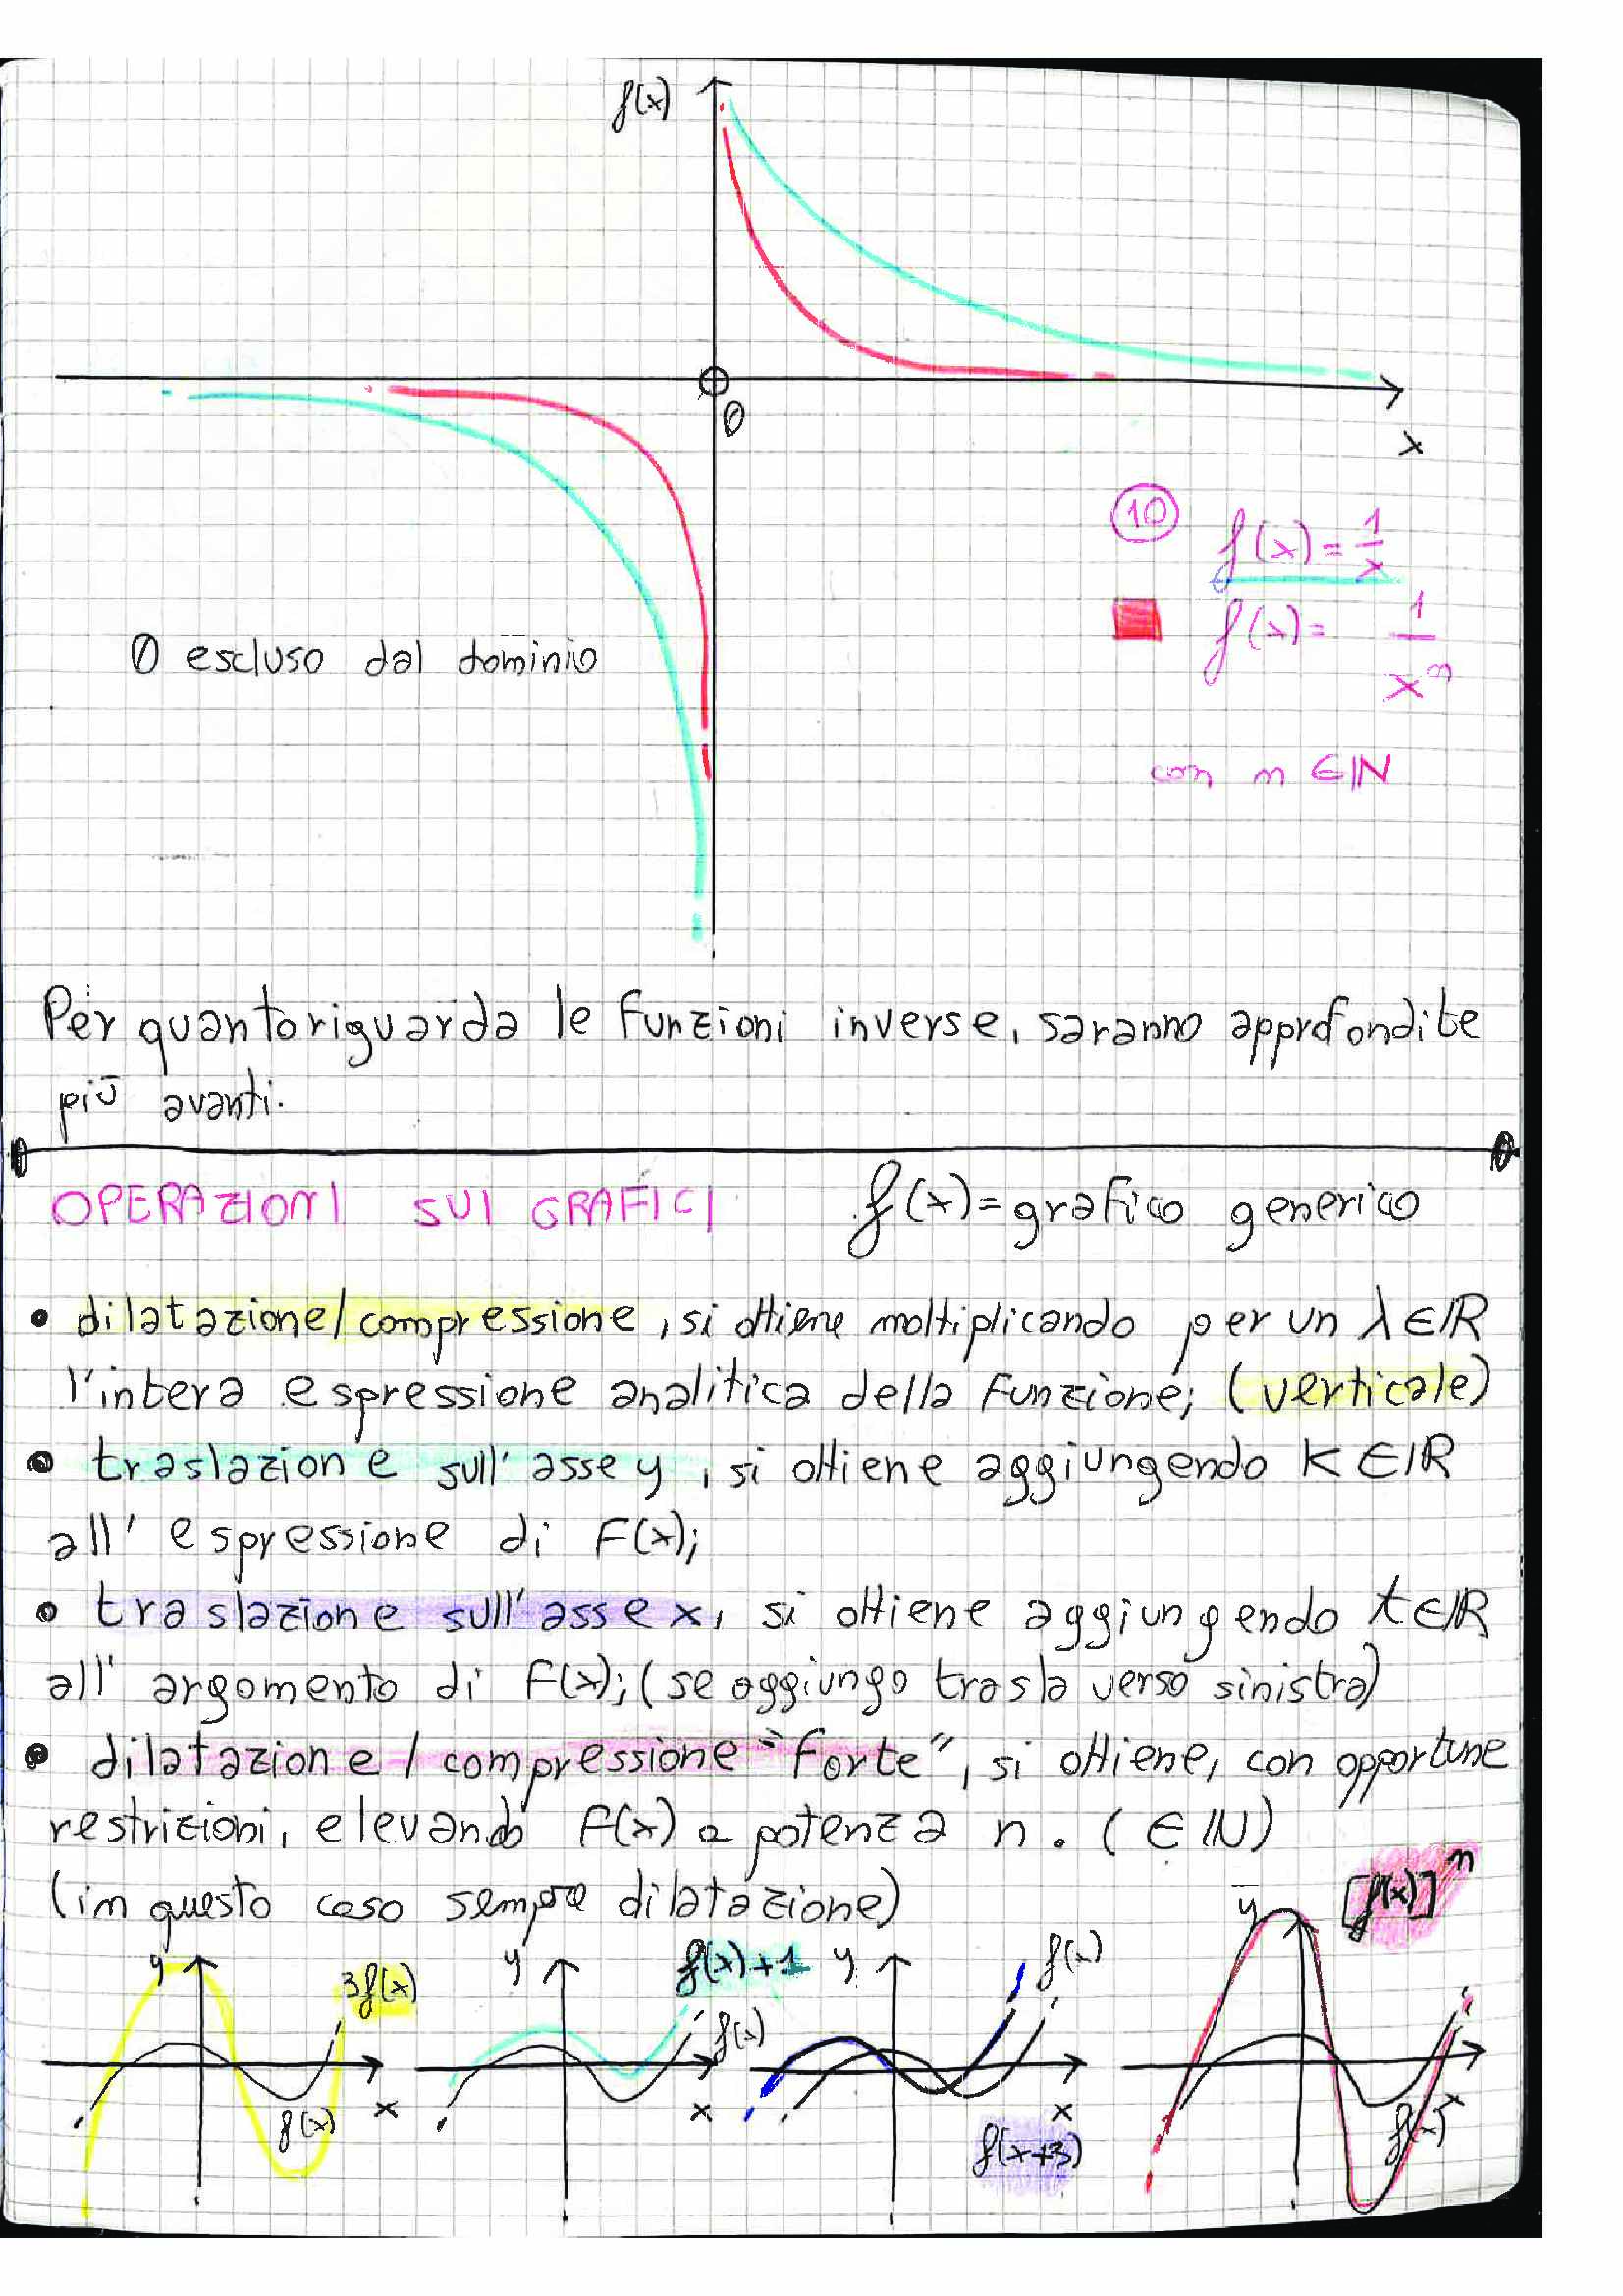 f(x)
0
x
10 f(x)= 1/x
f(x)= 1/x^n
0 escluso dal dominio
con n ∈ ℕ
Per quanto riguarda le funzioni inverse, saranno approfondite
più avanti.
OPERAZIONI SUI GRAFICI f(x)=grafico generico
• dilatazione/compressione, si ottiene moltiplicando per un λ∈ℝ
l'intera espressione analitica della funzione; (verticale)
• traslazione sull'asse y, si ottiene aggiungendo K∈ℝ
all'espressione di f(x);
• traslazione sull'asse x, si ottiene aggiungendo t∈ℝ
all'argomento di f(x); (se aggiungo trasla verso sinistra)
• dilatazione/compressione "forte", si ottiene, con opportune
restrizioni, elevando f(x) a potenza n. (∈ℕ)
(in questo caso sempre dilatazione)
y 3f(x) f(x) x
y f(x)+1 f(x) x
y f(x) x f(x+3)
y [f(x)]^n f(x) x